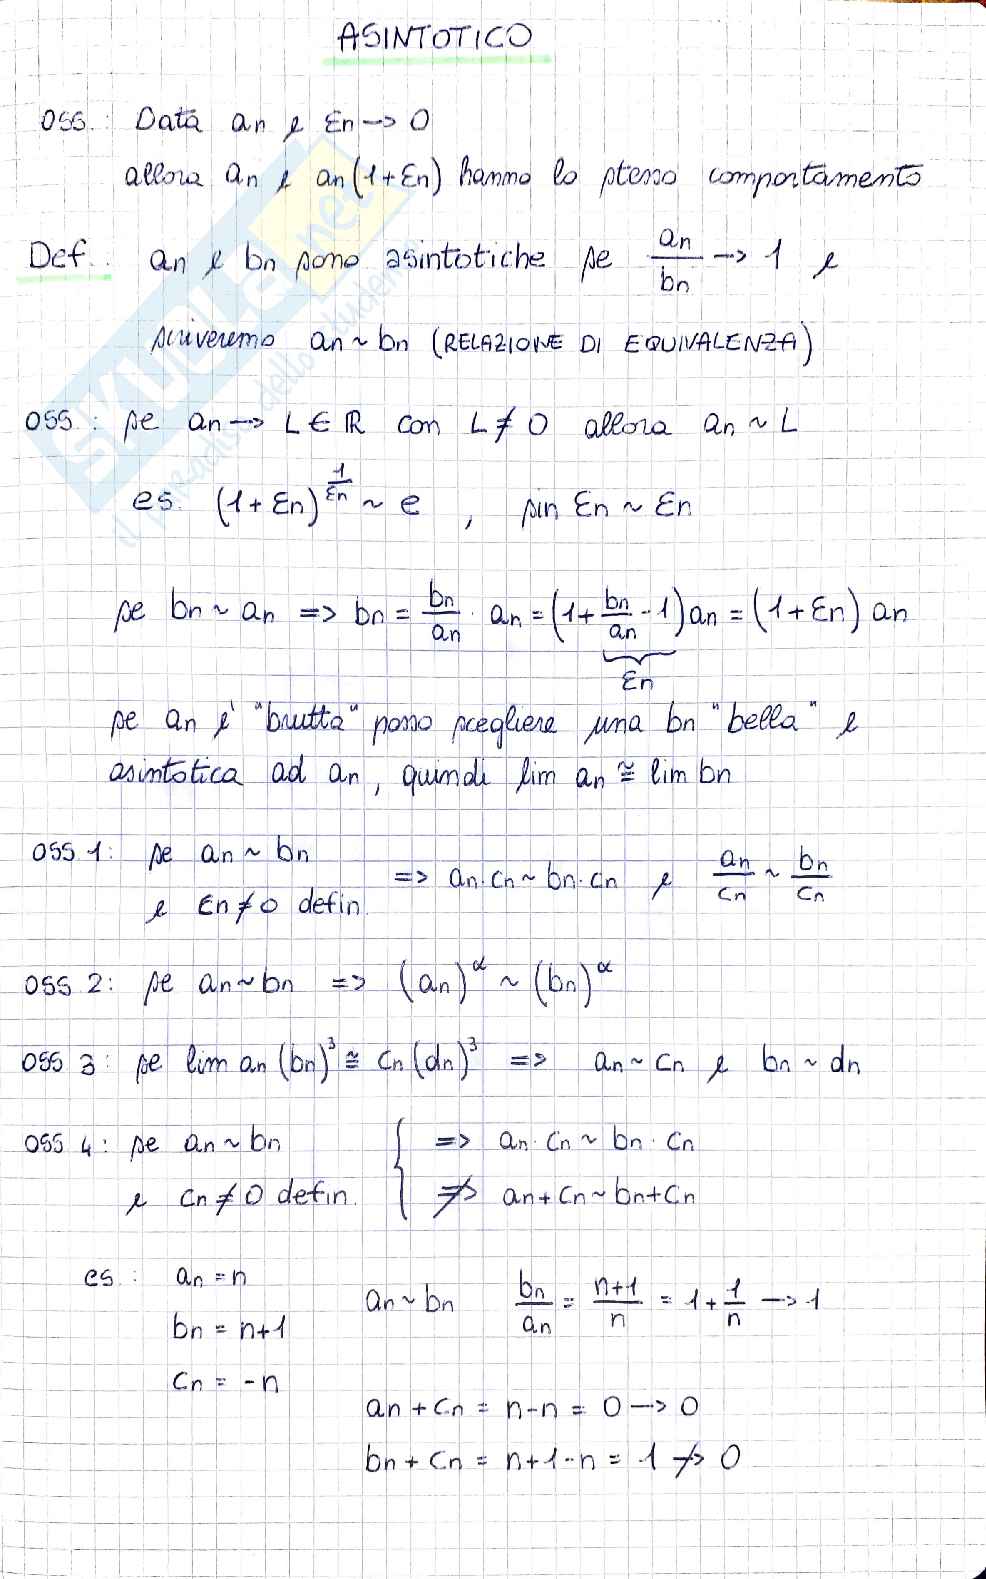 ASINTOTICO
OSS. : Data an e εn --> 0
allora an e an(1+εn) hanno lo stesso comportamento
Def. : an e bn sono asintotiche se an/bn --> 1 e
scriveremo an ~ bn (RELAZIONE DI EQUIVALENZA)
OSS : se an --> L ∈ ℝ con L ≠ 0 allora an ~ L
es. (1+εn)^(1/εn) ~ e , sin εn ~ εn
se bn ~ an => bn = bn/an · an = (1 + bn/an - 1) an = (1+εn) an
εn
se an è "brutta" posso scegliere una bn "bella" e
asintotica ad an, quindi lim an ≅ lim bn
OSS 1: se an ~ bn
e εn ≠ 0 defin.
=> an·cn ~ bn·cn e an/cn ~ bn/cn
OSS 2: se an ~ bn => (an)^α ~ (bn)^α
OSS 3: se lim an (bn)³ ≅ cn (dn)³ => an ~ cn e bn ~ dn
OSS 4: se an ~ bn
e cn ≠ 0 defin.
{ => an · cn ~ bn · cn
≠> an + cn ~ bn + cn
es : an = n
bn = n+1
cn = -n
an ~ bn bn/an = n+1/n = 1 + 1/n --> 1
an + cn = n-n = 0 --> 0
bn + cn = n+1-n = 1 -/> 0
SKUOLA.net
il paradiso dello studente